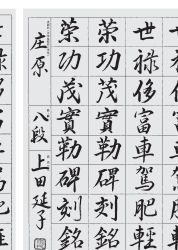 世祿侈富車駕肥輕
策功茂實勒碑刻銘
策功茂實勒碑刻銘
庄原 八段 上田延子